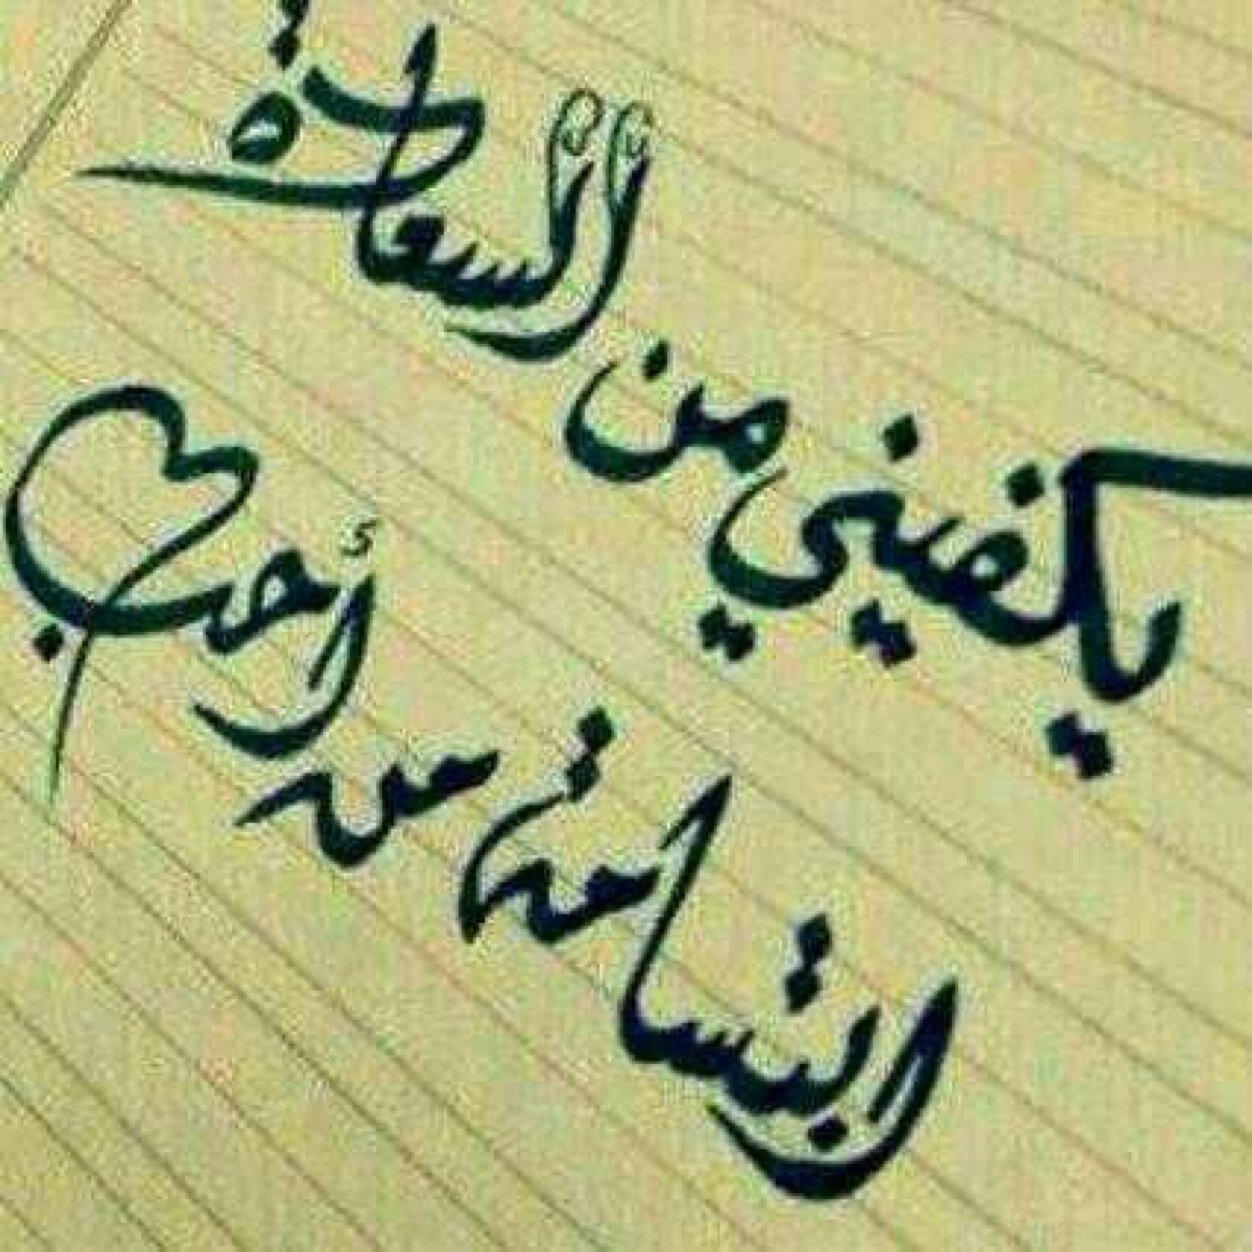 يكفيني من السعادة
ابتسامة من أحب